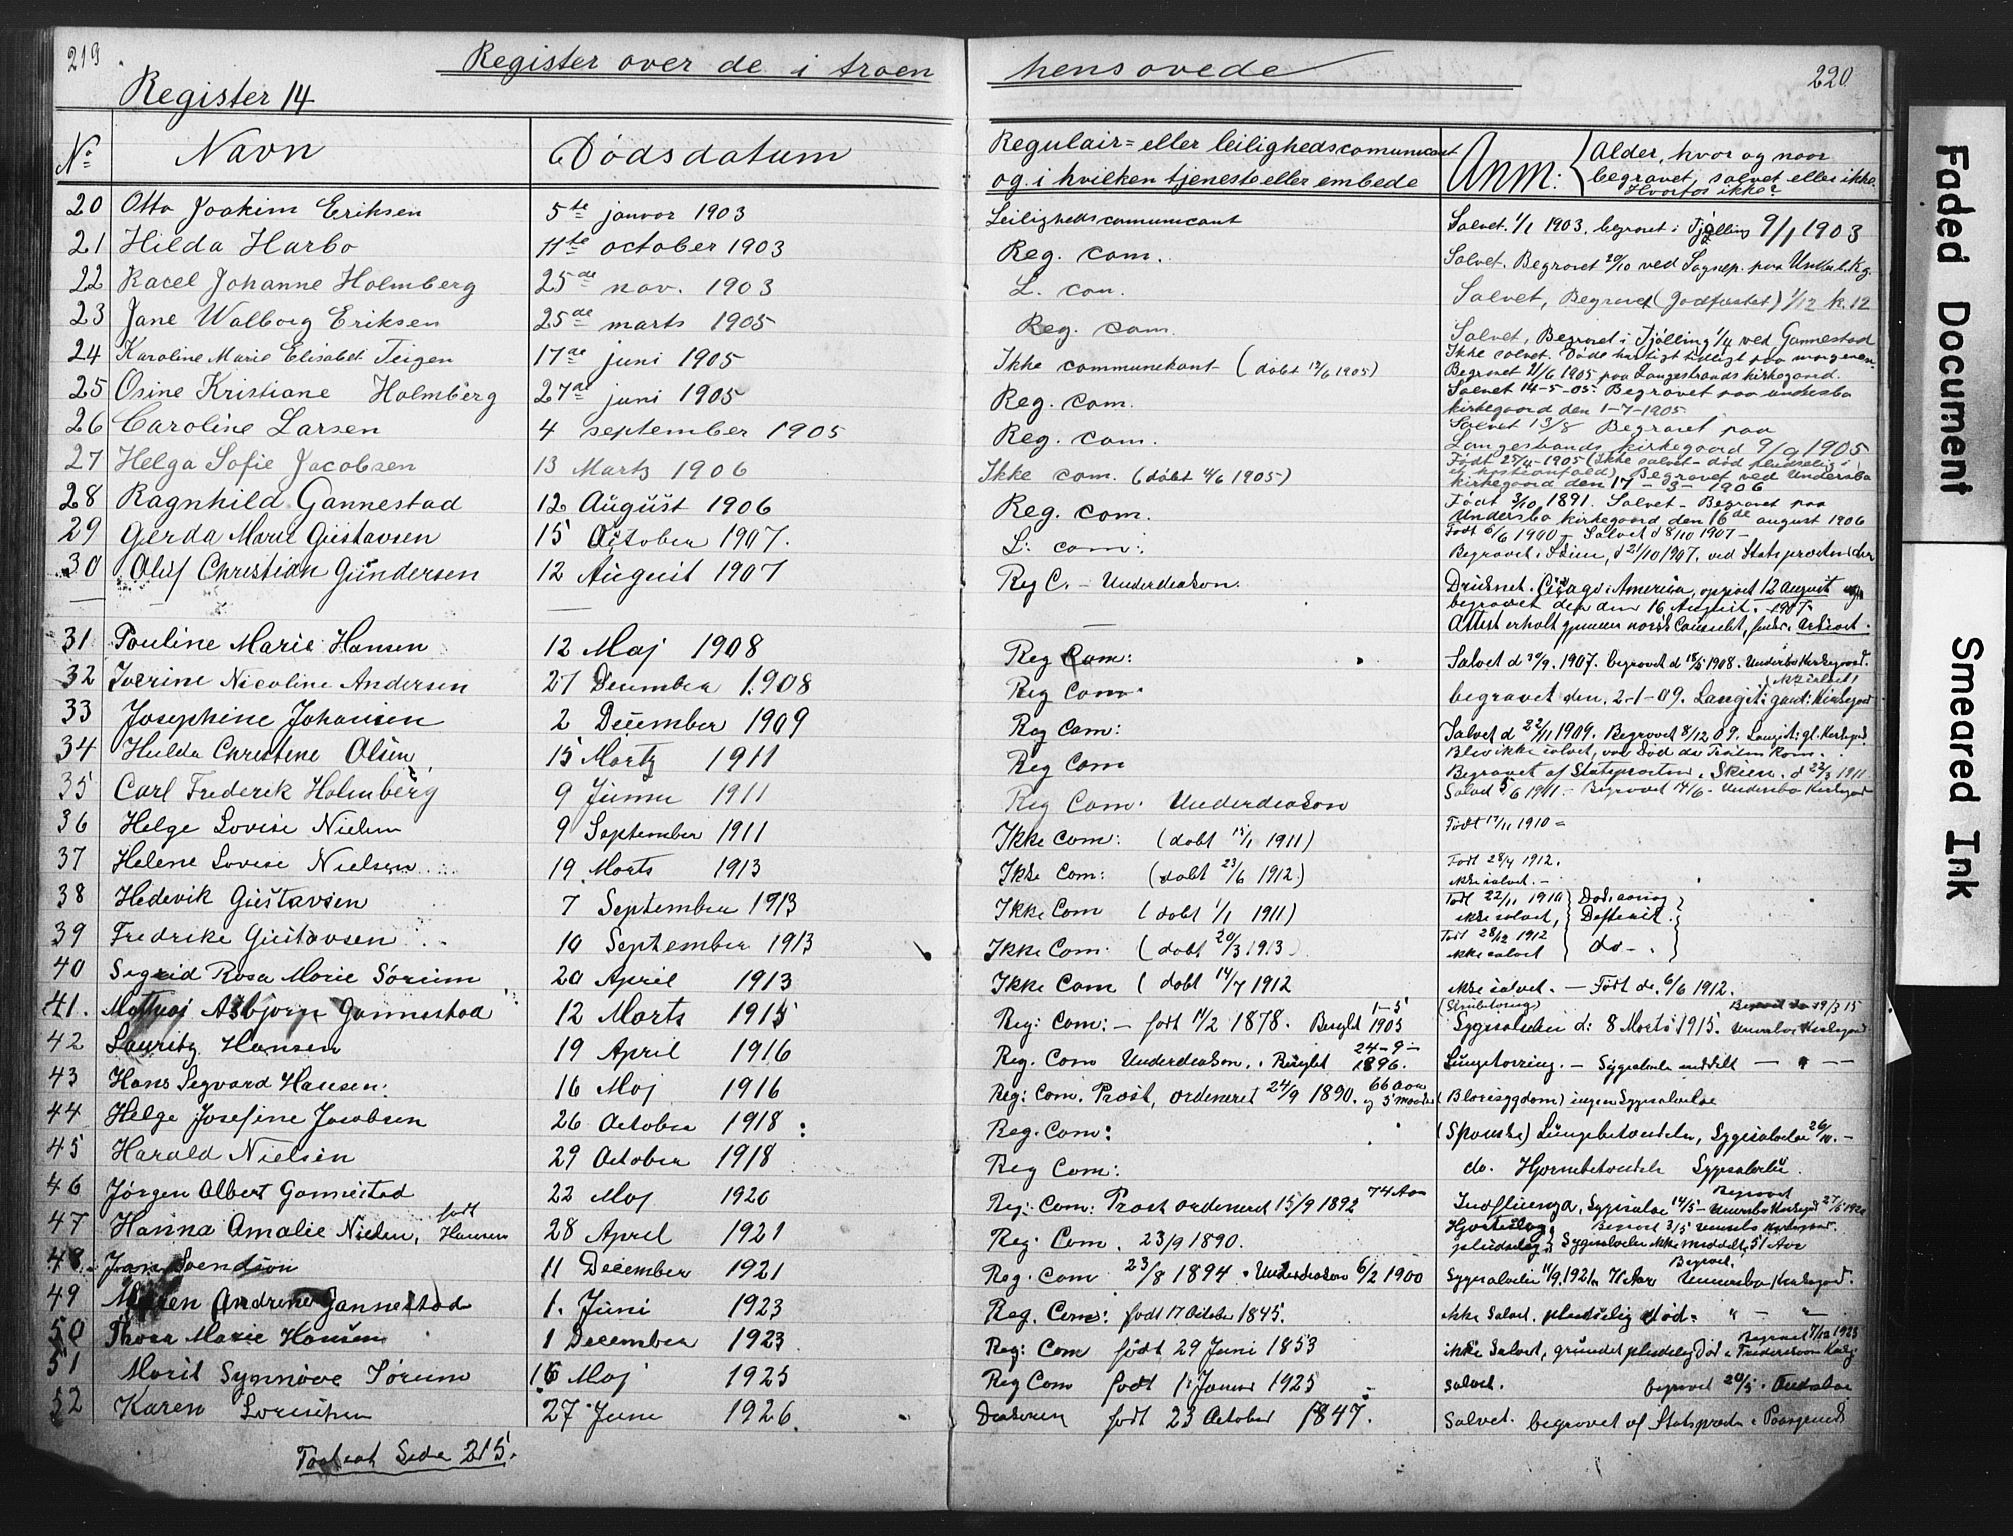 219.
Register over de i troen hensovede
220
Register 14
No Navn Dødsdatum Regulair= eller leilighedscomunicant og i hvilken tjeneste eller embede Anm: { Alder, hvor og naar begravet, salvet eller ikke. Hvorfor ikke?
20 Otto Joakim Eriksen 5te januar 1903 Leilighedscomunicant Salvet 1/1 1903, begravet i Tjølling 9/1 1903
21 Hilda Harbo 11te october 1903 Reg. com. Salvet. Begravet 20/10 ved Sognep. paa Undersb. Kg.
22 Racel Johanne Holmberg 25de nov. 1903 L. con. Salvet, Begravet (Jodfæstet) 1/12 k. 12
23 Jane Walborg Eriksen 25de marts 1905 Reg. com. Salvet, Begravet i Tjølling 1/4 ved Gannestad
24 Karoline Marie Elisabet Teigen 17de juni 1905 Ikke communekant (døbt 12/6 1905) Ikke salvet. Døde hastigt tidligt paa morgenen. Begravet 21/6 1905 paa Langestrands kirkegaard.
25 Osine Kristiane Holmberg 27de juni 1905 Reg. com. Salvet 14-5-05. Begravet paa undersbo kirkegaard den 1-7-1905
26 Caroline Larsen 4 september 1905 Reg. com. Salvet 13/8 Begravet paa Langestrands kirkegaard 9/9 1905
27 Helga Sofie Jacobsen 13 Marts 1906 Ikke com. (døbt 4/6 1905) Født 25/4-1905 (ikke salvet- død pludselig i Begravet ved Undersbo kirkegaard den 17-3-1906
28 Ragnhild Gannestad 12 August 1906 Reg. com. Født 3/10 1891. Salvet- Begravet paa Undersbo kirkegaard den 16de august 1906
29 Gerda Marie Gustavsen 15 October 1907. L: com: Født 6/6 1900 - Salvet d 8/10 1907 - Begravet i Skien, d 21/10 1907. ved Statsprosten der
30 Oluf Christian Gundersen 12 August 1907 Reg C. - Underdiakon. Druknet. i America, 12 August begravet den 16 August. 1907. Attest erholt gjennem norsk Consulat,
31 Pouline Marie Hansen 12 Maj 1908 Reg Com: Salvet d 20/9. 1907. begravet d 18/5 1908. Undersbo Kirkegaard.
32 Nicoline Andersen 27 December 1908 Reg Com. begravet den. 2-1-09. Kirkegaard (ikke salvet)
33 Josephine Johansen 2 December 1909 Reg Com: Salvet d 22/11 1909. Begravet 8/12 09. Kirkegd.
34 Hulda Christene Olsen, 15 Marts 1911 Reg Com Blev ikke salvet, var Død da Presten kom. Begravet af Statsprosten i Skien. d 22/3 1911
35 Carl Frederik Holmberg 9 Junni 1911 Reg Com. Underdiakon Salvet 5/6 1911. - Begravet 14/6 - Undersbo Kirkegd
36 Helge Lovise Nielsen 9 September 1911 Ikke Com: (døbt 15/1 1911) Født 17/11 1910 =
37 Helene Lovise Nielsen 19. Marts 1913 Ikke Com: (døbt 23/6 1912.) Født 28/4 1912. ikke salvet. -
38 Hedevik Gustavsen 7 September 1913 Ikke Com (døbt 1/1 1911) Født 22/11 1910 ikke salvet, } Dødsaarsag Difterit.
39 Fredrike Gustavsen 10 September 1913 Ikke Com: (døbt 20/3 1913) Født 28/12 1912 ikke salvet } do - .
40 Sigrid Rosa Marie Sørum 20 April 1913 Ikke Com (døbt 14/7 1912 ikke salvet. - Født de. 6/6 1912.
41. Mathias Asbjørn Gannestad 12 Marts 1915 Reg: Com: - født 14/2 1878. Beseglet 1-5 1905 Sygesalvelse d: 8 Marts 1915. Undersbo Kirkegd 19/3 15
42 Lauritz Hansen 19 April 1916 Reg. Com Underdiakon. Beseglet 24-9- 1896. Lungetæring. - Sygesalvelse meddelt - " - -
43 Hans Segvard Hansen: 16 Maj 1916 Reg: Com. Præst, ordeneret 24/9 1890. 66 aar og 5 maaneder (Blæresygdom) ingen Sygesalvelse
44 Helge Josefine Jacobsen 26 October 1918 : Reg. Com: (Spanske) Lungebetændelse, Sygesalvelse 26/10. -
45 Harald Nielsen 29 October 1918 Reg Com: do. Hjernebetændelse Sygesalvelse.
46 Jørgen Albert Gannestad 22 Maj 1920 Reg: Com: Præst ordeneret 15/9 1892 74 Aar Influenza, Sygesalve 14/5 - Begravet Undersbo Kirkegd 27/5 1920
47 Hanna Amalie Nielsen, født Hansen 28 April 1921 Reg: Com. 23/9 1890. Hjerteslag pludselig Begravet 3/5 Undersbo Kirkegaard. Sygesalvelse ikke meddelt, 51 Aar
48. Svendsen 11 December 1921 Reg. Com 23/8 1894 . Underdiakon 6/2 1900 Sygesalvelse 11/9 1921, 71 Aar Begravet. Undersbo Kirkegaard.
49 Maren Andrine Gannestad 1. Juni 1923 Reg. Com: født 17 October 1845. ikke salvet. pludselig død - " - "
50 Thora Marie Hansen 1 December 1923 Reg: Com født 29 Juni 1853 ikke salvet, grundet pludselig Død. Begravet 7/12 1923 Frederiksværn Kirkg:
51 Marit Synnøve Sørum 16 Maj 1925 Reg Com født 1. Januar 1925 salvet. begravet 20/5. Undersbo
52 Karen 27 Juni 1926 født 23 October 1847. Salvet. begravet af Statsprosten i Porsgrund
Fortsat Side 215.
Faded Document
Smeared Ink